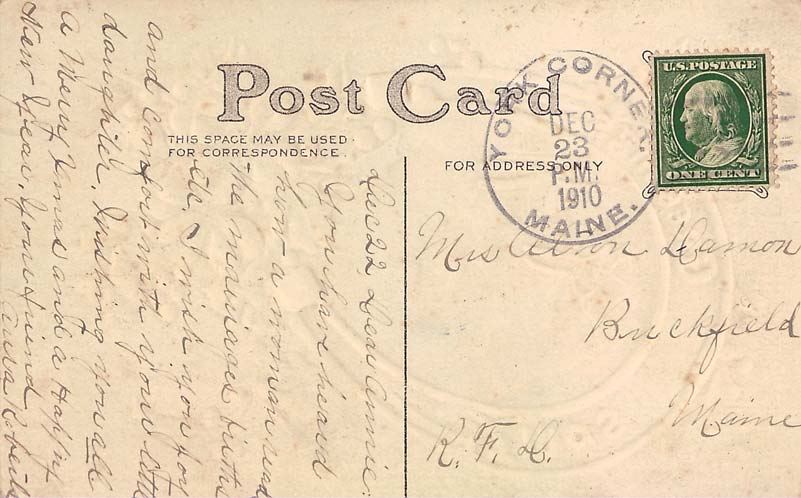 Post Card
THIS SPACE MAY BE USED
FOR CORRESPONDENCE.
FOR ADDRESS ONLY
YORK CORNER.
DEC
23
P.M.
1910
MAINE.
U.S. POSTAGE
ONE CENT
Mrs Damon
Buckfield
Maine
R. F. D.
Dec 22, Dear Annie:
You have heard
how a woman reads
the marriages births
etc. I wish you joy
and comfort with your little
daughter. Wishing you all
a Merry Xmas and a Happy
New Year, Your friend